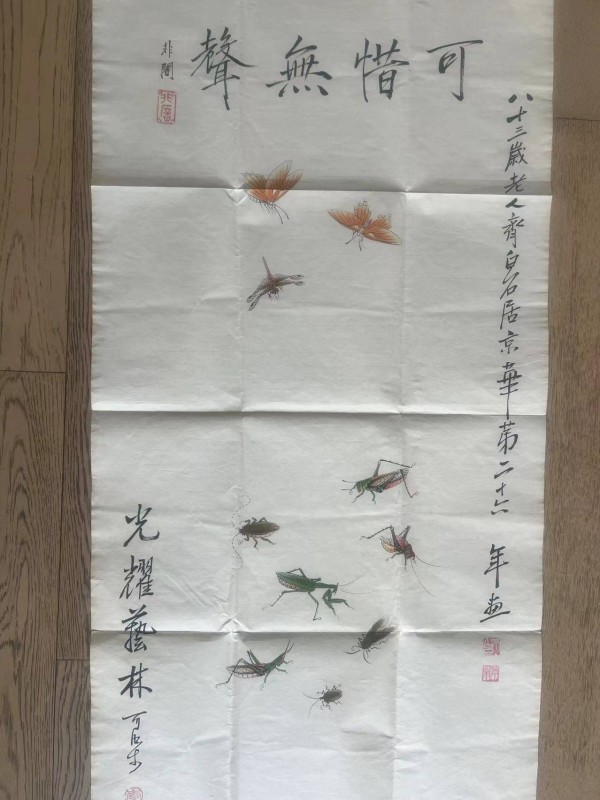 可惜無聲
非闇
八十三歲老人齊白石居京華第二十六年畫
光耀藝林